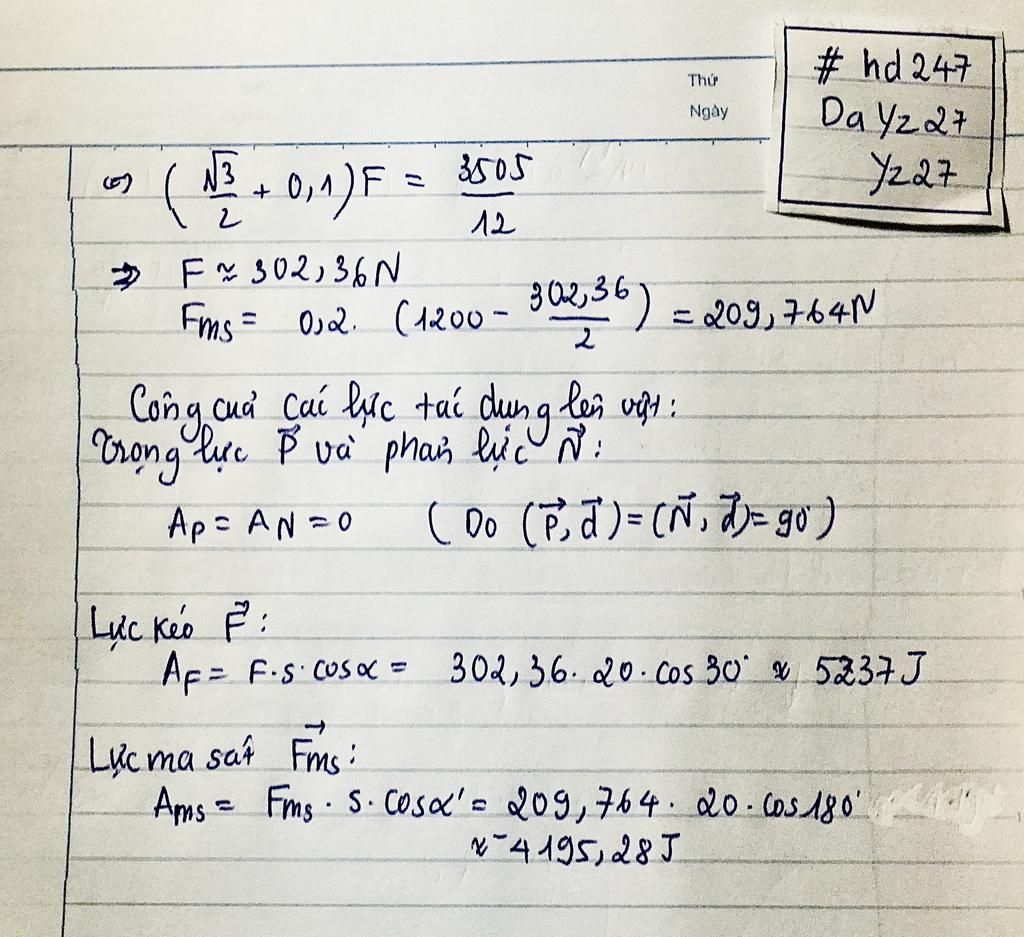 Thứ
Ngày
# hd247
Da Yz27
Yz27
⇔ (√3/2 + 0,1)F = 3505/12
⇒ F ≈ 302,36N
Fms = 0,2. (1200 - 302,36/2) = 209,764N
Công của các lực tác dụng lên vật:
Trọng lực P⃗ và phản lực N⃗:
AP = AN = 0 ( Do (P⃗, d⃗) = (N⃗, d⃗) = 90°)
Lực kéo F⃗:
AF = F.s.cosα = 302,36. 20. cos 30° ≈ 5237J
Lực ma sát F⃗ms:
Ams = Fms . s. cosα' = 209,764. 20. cos180°
≈ -4195,28J